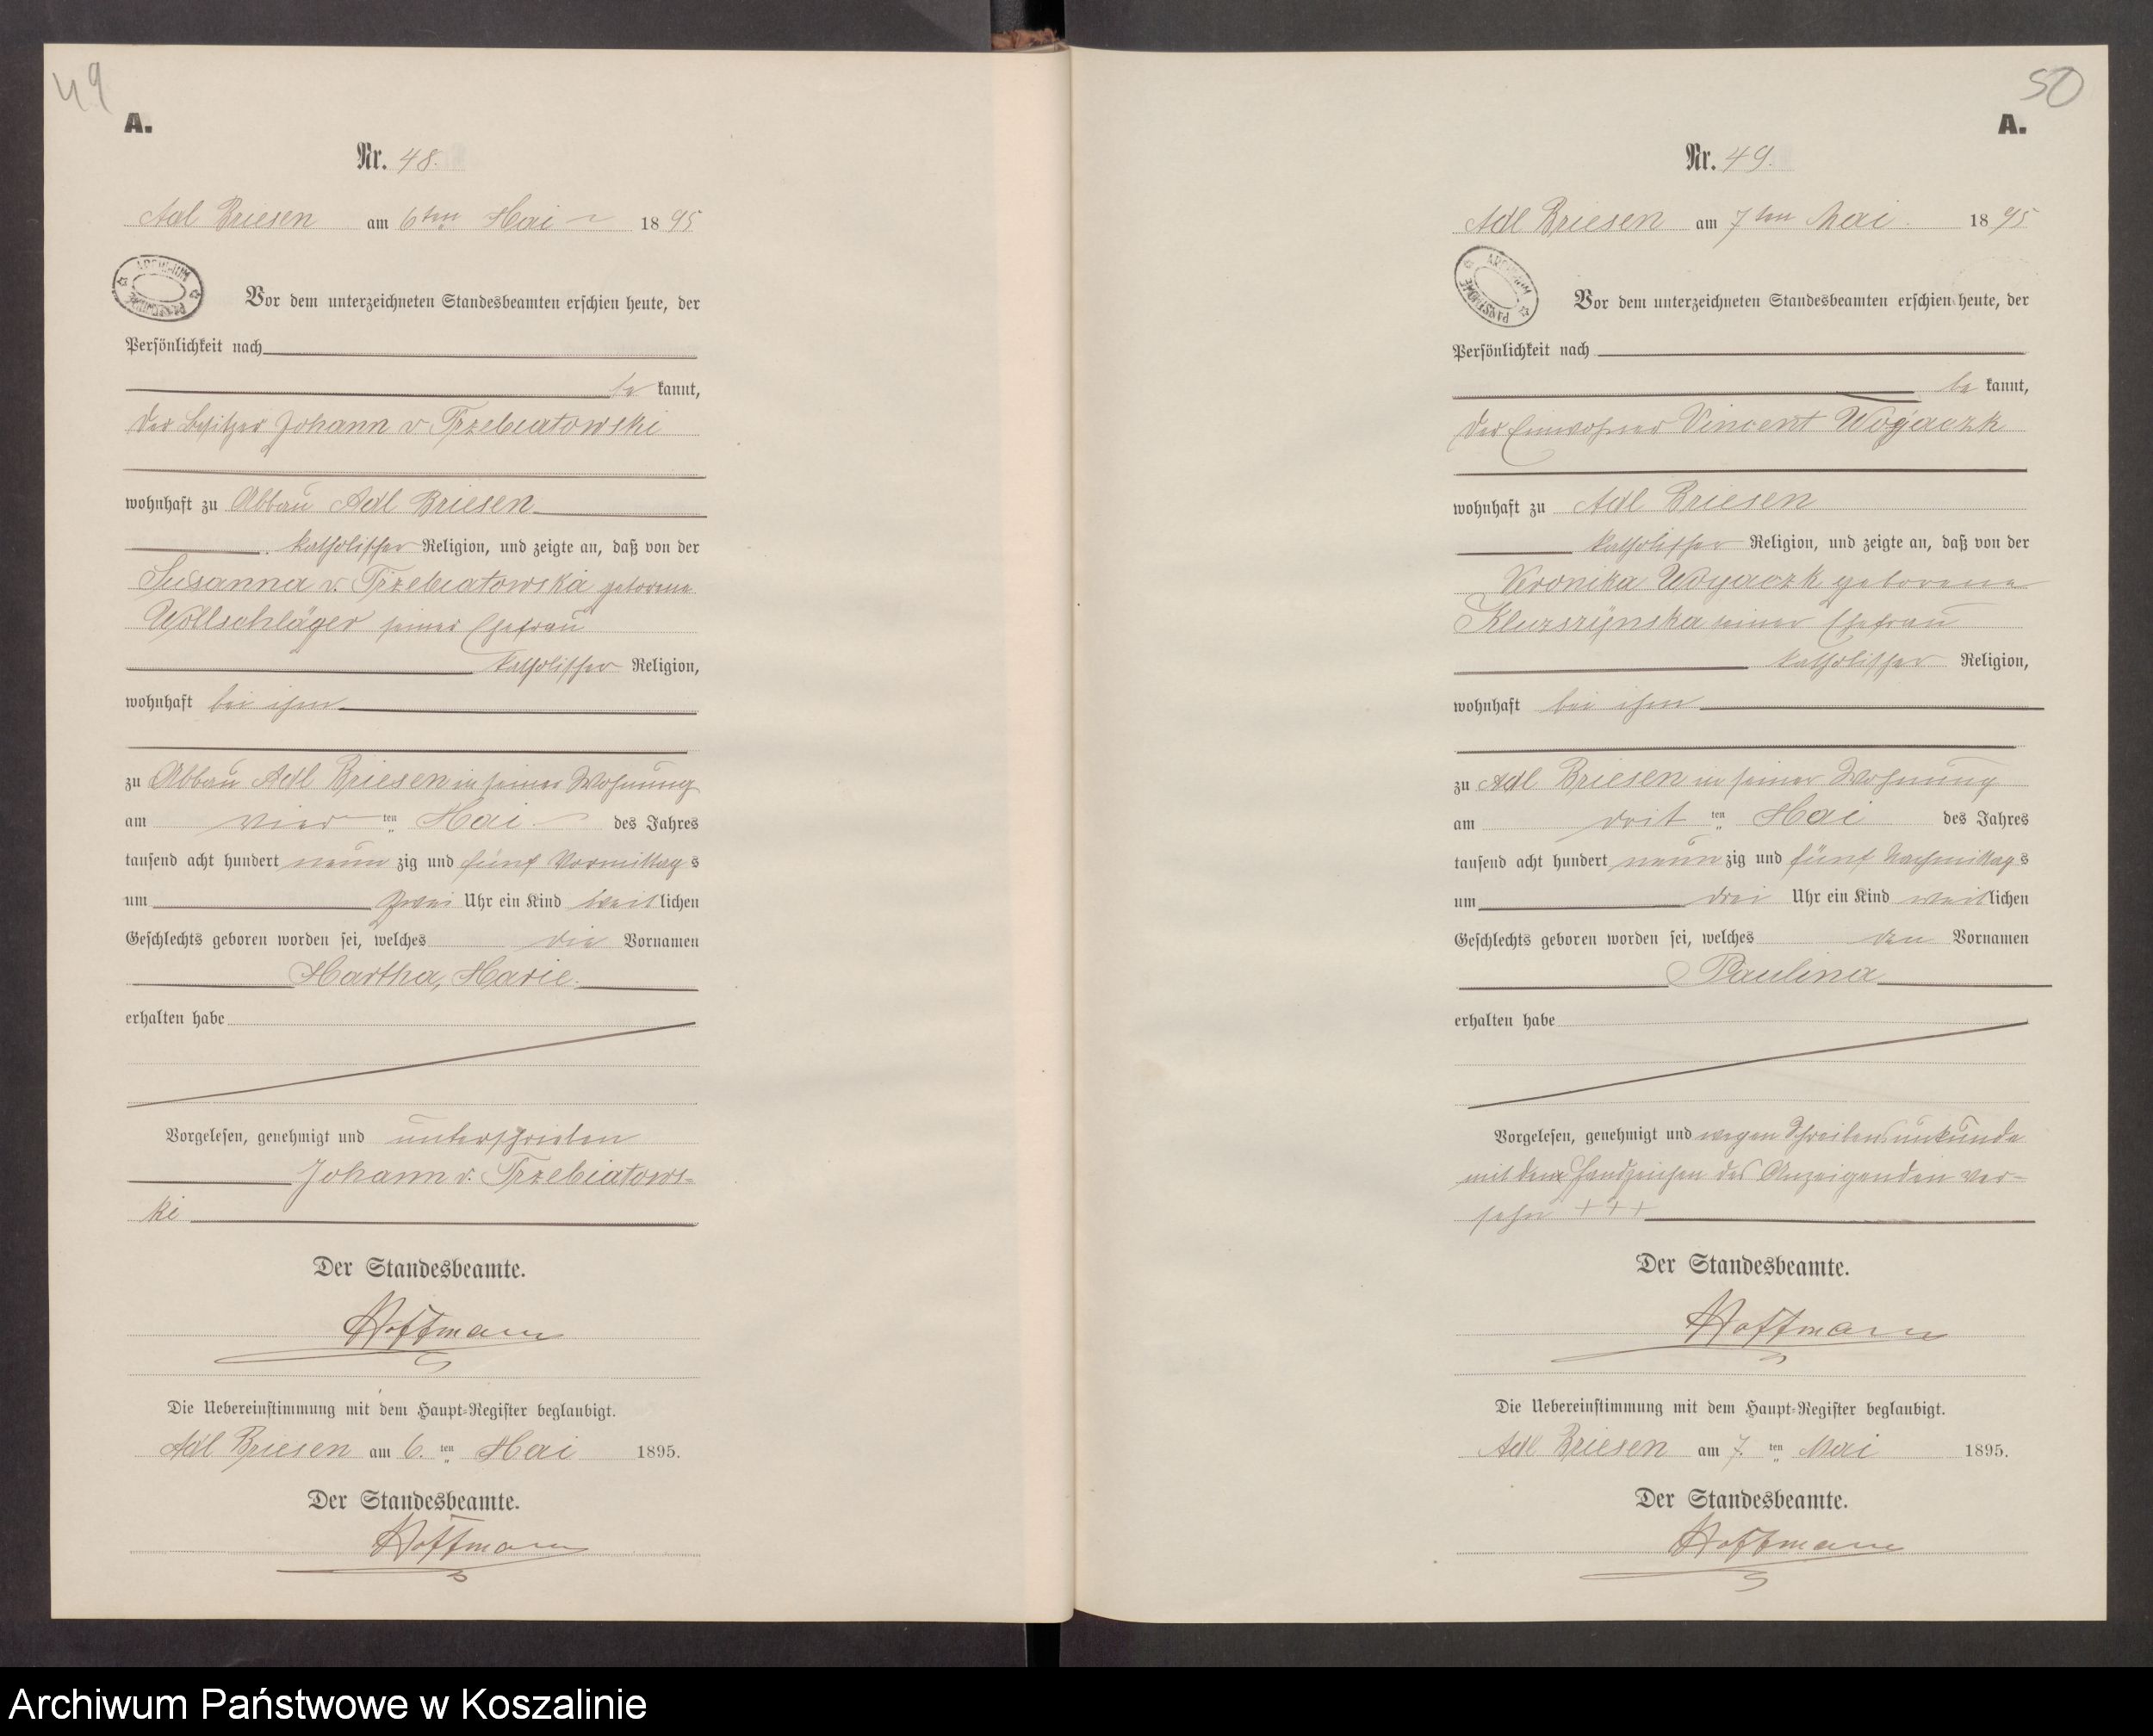 49
A.
Nr. 48.
Adl Briesen am 6ten Mai 1895
ARCHIWUM PAŃSTWOWE
Vor dem unterzeichneten Standesbeamten erschien heute, der
Persönlichkeit nach
be kannt,
der Besitzer Johann v Trzebiatowski
wohnhaft zu Abbau Adl Briesen
katholischer Religion, und zeigte an, daß von der
Susanna v. Trzebiatowska geborene
Wollschläger seiner Ehefrau
katholischer Religion,
wohnhaft bei ihm
zu Abbau Adl Briesen in seiner Wohnung
am vier ten Mai des Jahres
tausend acht hundert neun zig und fünf Vormittags
um zwei Uhr ein Kind weiblichen
Geschlechts geboren worden sei, welches die Vornamen
Martha, Marie.
erhalten habe
Vorgelesen, genehmigt und unterschrieben
Johann v. Trzebiatows-
ki
Der Standesbeamte.
Hoffmann
Die Uebereinstimmung mit dem Haupt-Register beglaubigt.
Adl Briesen am 6. ten Mai 1895.
Der Standesbeamte.
Hoffmann
50
A.
Nr. 49.
Adl Briesen am 7ten Mai. 1895
ARCHIWUM PAŃSTWOWE
Vor dem unterzeichneten Standesbeamten erschien heute, der
Persönlichkeit nach
be kannt,
der Einwohner Vincent Wogaczk
wohnhaft zu Adl Briesen
katholischer Religion, und zeigte an, daß von der
Veronika Wogaczk geborene
Kluzszynska seiner Ehefrau
katholischer Religion,
wohnhaft bei ihm
zu Adl Briesen in seiner Wohnung
am drit ten Mai des Jahres
tausend acht hundert neun zig und fünf Nachmittags
um drei Uhr ein Kind weiblichen
Geschlechts geboren worden sei, welches den Vornamen
Paulina
erhalten habe
Vorgelesen, genehmigt und wegen Schreibensunkunde
mit dem Handzeichen des Anzeigenden ver-
sehn +++
Der Standesbeamte.
Hoffmann
Die Uebereinstimmung mit dem Haupt-Register beglaubigt.
Adl Briesen am 7. ten Mai 1895.
Der Standesbeamte.
Hoffmann
Archiwum Państwowe w Koszalinie